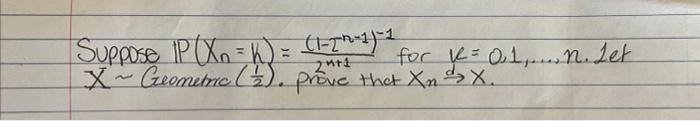 Suppose P(Xn = k) = (1-2^-n-1)^-1 / 2^k+1 for k = 0,1,...,n. Let
X ~ Geometric (1/2). prove that Xn →d X.